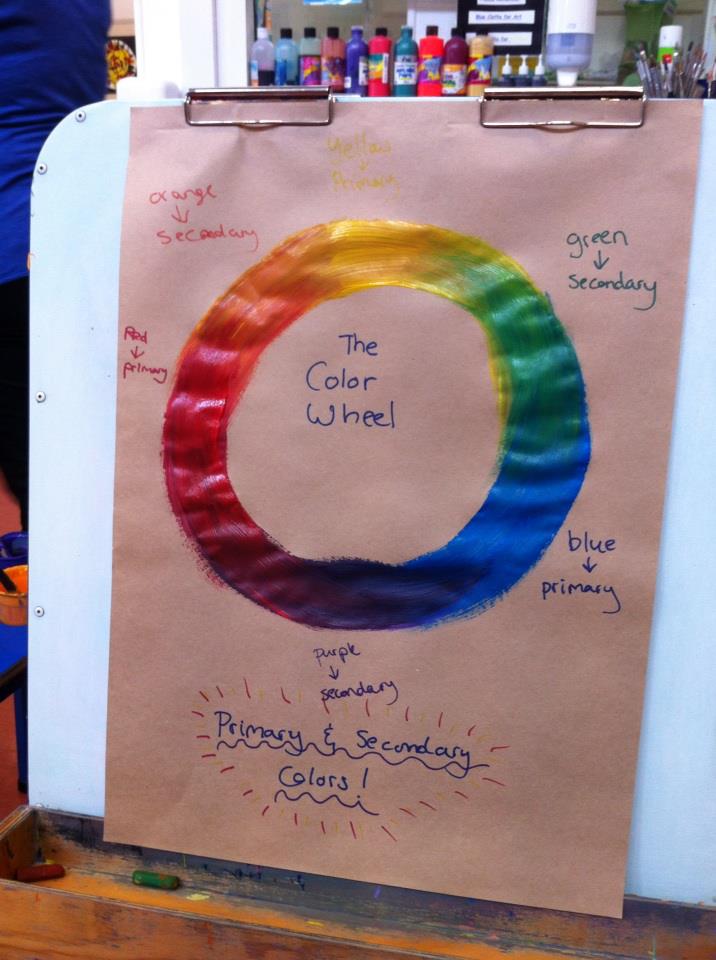 Blue Cloths for Art
Yellow
Primary
orange
secondary
green
secondary
Red
primary
The
Color
Wheel
blue
primary
purple
secondary
Primary & Secondary
Colors!